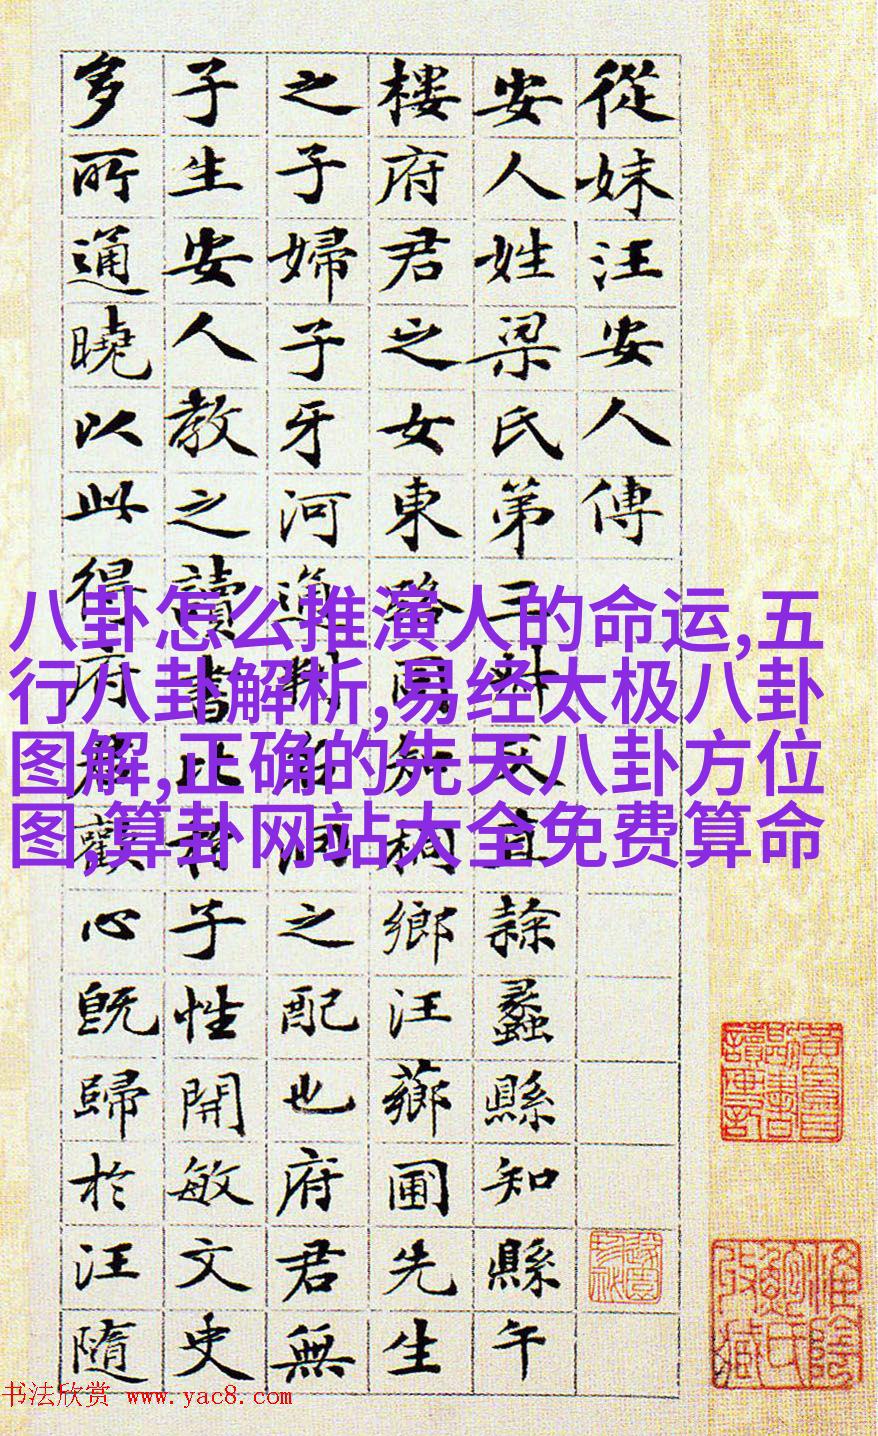 從妹汪安人傳
安人姓梁氏第三直隸蠡縣知縣午
樓府君之女東路同知桐鄉汪薌圃先生
之子婦子牙河通判之配也府君無
子生安人教之讀書比子性開敏文史
多所通曉以此得府君歡心既歸於汪隨
八卦怎么推演人的命运,五
行八卦解析,易经太极八卦
图解,正确的先天八卦方位
图,算卦网站大全免费算命
书法欣赏 www.yac8.com